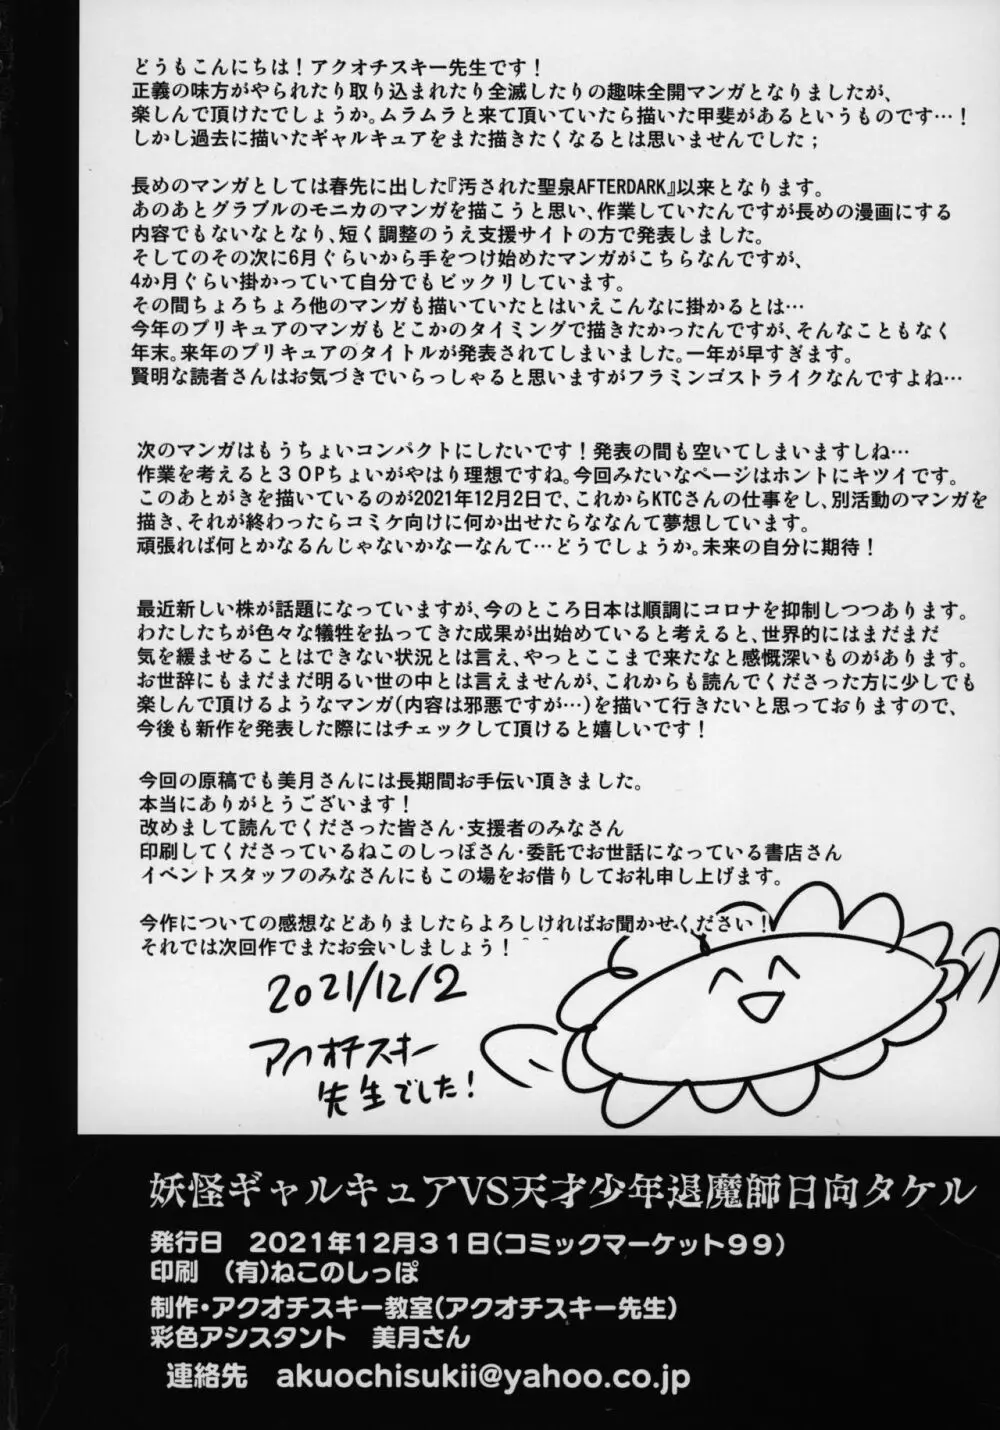 どうもこんにちは！アクオチスキー先生です！
正義の味方がやられたり取り込まれたり全滅したりの趣味全開マンガとなりましたが、
楽しんで頂けたでしょうか。ムラムラと来て頂いていたら描いた甲斐があるというものです…！
しかし過去に描いたギャルキュアをまた描きたくなるとは思いませんでした；
長めのマンガとしては春先に出した『汚された聖泉AFTERDARK』以来となります。
あのあとグラブルのモニカのマンガを描こうと思い、作業していたんですが長めの漫画にする
内容でもないなとなり、短く調整のうえ支援サイトの方で発表しました。
そしてのその次に6月ぐらいから手をつけ始めたマンガがこちらなんですが、
4か月ぐらい掛かっていて自分でもビックリしています。
その間ちょろちょろ他のマンガも描いていたとはいえこんなに掛かるとは…
今年のプリキュアのマンガもどこかのタイミングで描きたかったんですが、そんなこともなく
年末。来年のプリキュアのタイトルが発表されてしまいました。一年が早すぎます。
賢明な読者さんはお気づきでいらっしゃると思いますがフラミンゴストライクなんですよね…
次のマンガはもうちょいコンパクトにしたいです！発表の間も空いてしまいますしね…
作業を考えると３０Pちょいがやはり理想ですね。今回みたいなページはホントにキツイです。
このあとがきを描いているのが2021年12月2日で、これからKTCさんの仕事をし、別活動のマンガを
描き、それが終わったらコミケ向けに何か出せたらななんて夢想しています。
頑張れば何とかなるんじゃないかなーなんて…どうでしょうか。未来の自分に期待！
最近新しい株が話題になっていますが、今のところ日本は順調にコロナを抑制しつつあります。
わたしたちが色々な犠牲を払ってきた成果が出始めていると考えると、世界的にはまだまだ
気を緩ませることはできない状況とは言え、やっとここまで来たなと感慨深いものがあります。
お世辞にもまだまだ明るい世の中とは言えませんが、これからも読んでくださった方に少しでも
楽しんで頂けるようなマンガ（内容は邪悪ですが…）を描いて行きたいと思っておりますので、
今後も新作を発表した際にはチェックして頂けると嬉しいです！
今回の原稿でも美月さんには長期間お手伝い頂きました。
本当にありがとうございます！
改めまして読んでくださった皆さん・支援者のみなさん
印刷してくださっているねこのしっぽさん・委託でお世話になっている書店さん
イベントスタッフのみなさんにもこの場をお借りしてお礼申し上げます。
今作についての感想などありましたらよろしければお聞かせください！
それでは次回作でまたお会いしましょう！＾＾
2021/12/2
アクオチスキー
先生でした！
妖怪ギャルキュアVS天才少年退魔師日向タケル
発行日　２０２１年１２月３１日（コミックマーケット９９）
印刷　（有）ねこのしっぽ
制作・アクオチスキー教室（アクオチスキー先生）
彩色アシスタント　美月さん
連絡先　akuochisukii@yahoo.co.jp